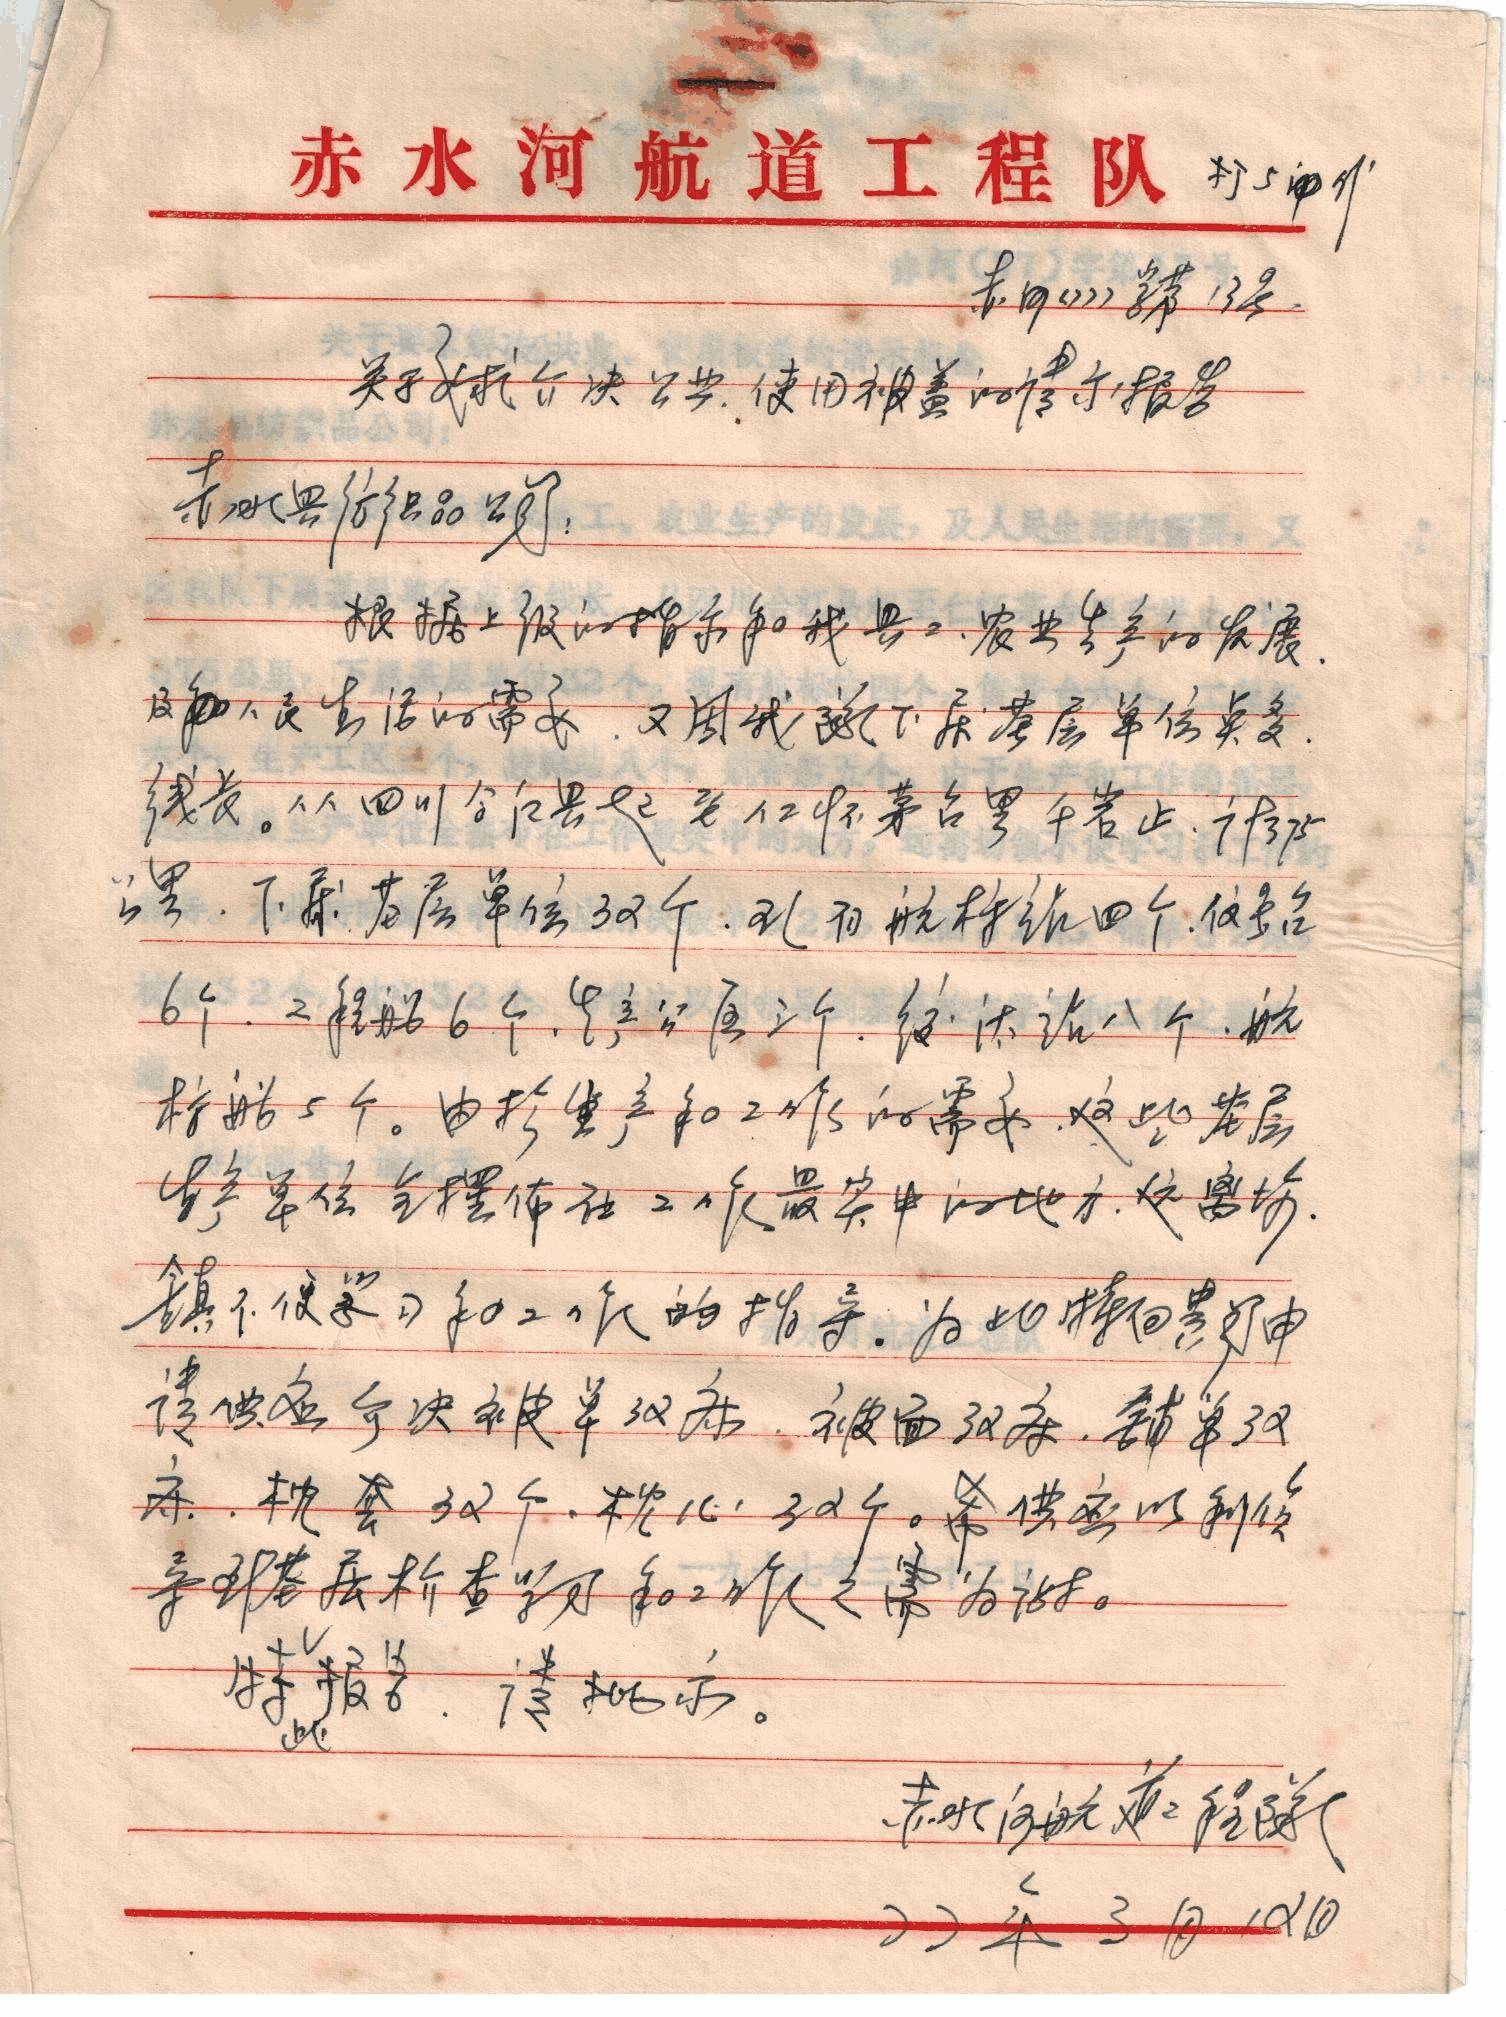 赤水河航道工程队
打5份
赤河(77)字第13号
关于要求介决公共使用被盖的请示报告
赤水县纺织品公司：
根据上级的指示和我县工、农业生产的发展，
及人民生活的需要，又因我队下属基层单位点多，
线长。从四川合江县起至仁怀茅台黑千岩止，计375
公里，下属基层单位32个，现有航标站四个，信号台
6个，工程船6个，生产工区三个，绞滩站八个，航
标船5个。由于生产和工作的需要，这些基层
生产单位全摆佈在工作最关中的地方，远离场
镇不便学习和工作的指导。为此特向贵司申
请供应介决被单32床，被面32床，铺单32
床，枕套32个，枕心32个。希供应以利领
导到基层检查学习和工作之需为谢。
特此报告，请批示。
赤水河航道工程队
77年3月12日